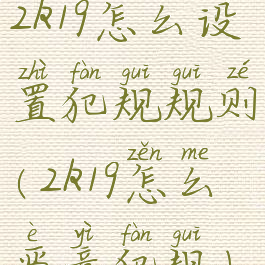 2k19怎么设
zhì fàn guī guī zé
置犯规规则
zěn me
(2k19怎么
è yì fàn guī
恶意犯规)